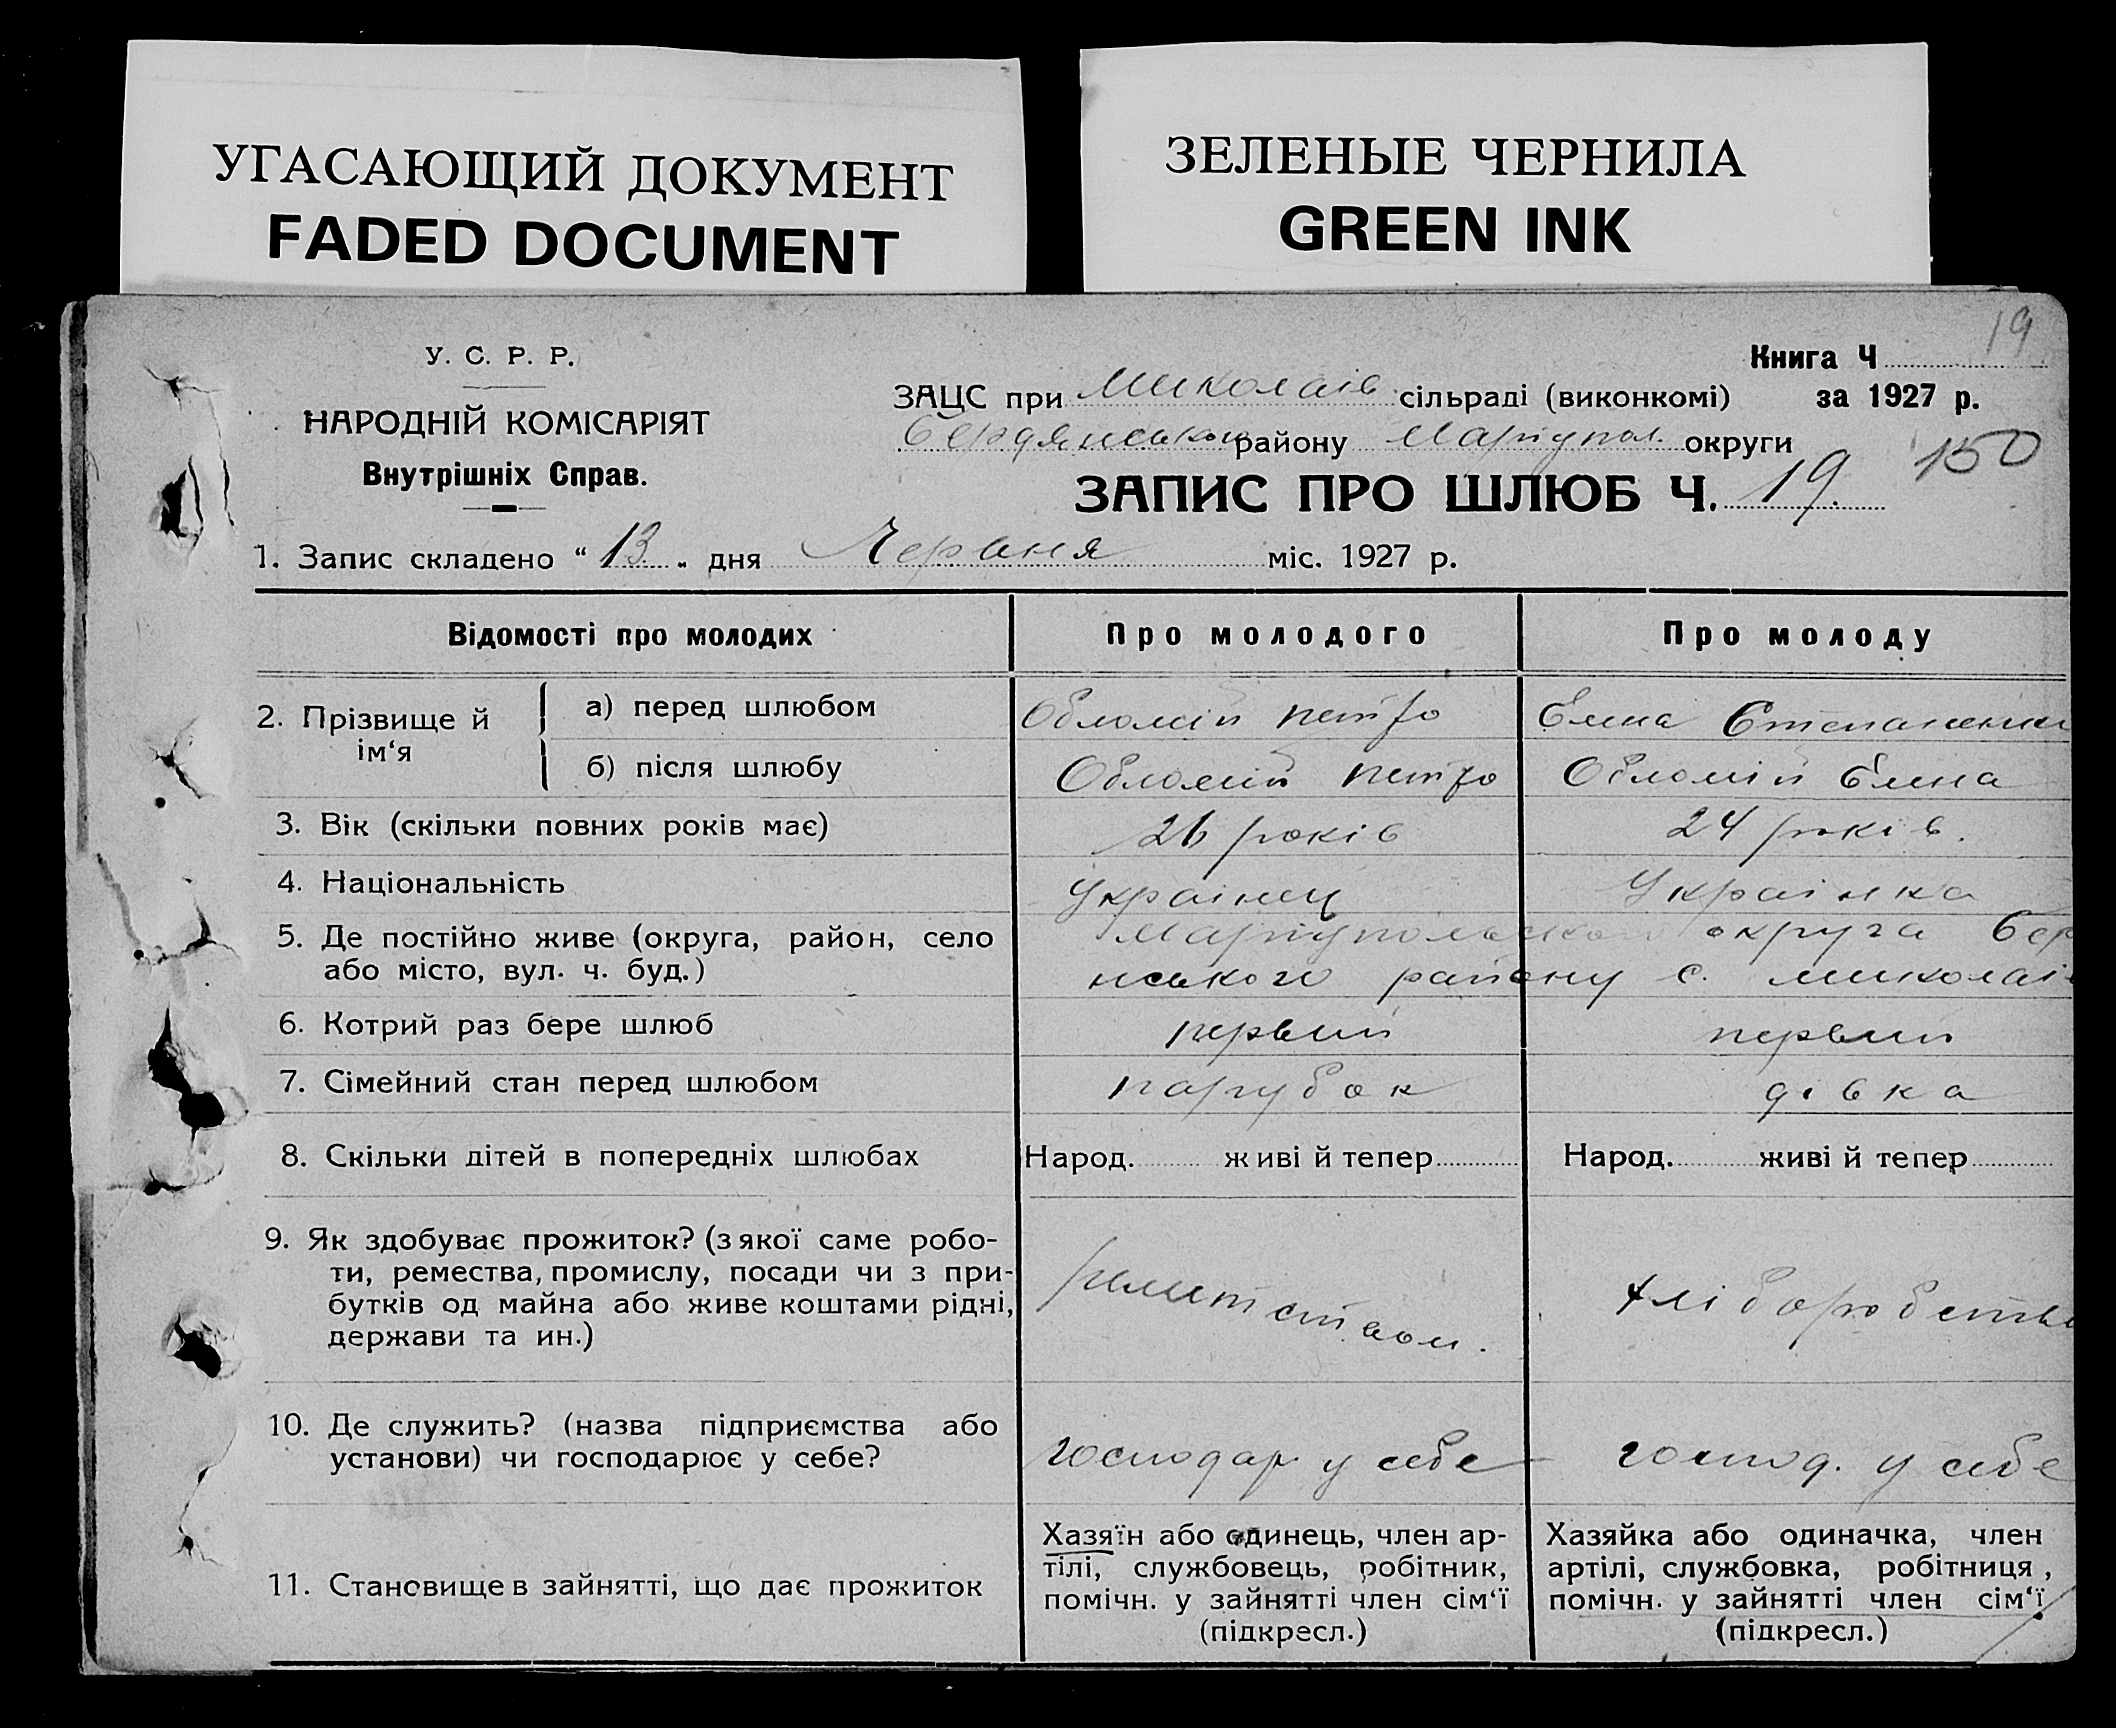 УГАСАЮЩИЙ ДОКУМЕНТ
FADED DOCUMENT
ЗЕЛЕНЫЕ ЧЕРНИЛА
GREEN INK
19
У. С. Р. Р.
НАРОДНІЙ КОМІСАРІЯТ
Внутрішніх Справ.
Книга Ч
ЗАЦС при Миколаів сільраді (виконкомі) за 1927 р.
Бердянського району Маріупол. округи
150
ЗАПИС ПРО ШЛЮБ Ч. 19.
1. Запис складено “ 13 „ дня Червня міс. 1927 р.
Відомості про молодих Про молодого Про молоду
2. Прізвище й ім‘я
а) перед шлюбом Обломій Петро Елена Степаненко
б) після шлюбу Обломій Петро Обломій Елена
3. Вік (скільки повних років має) 26 років 24 років.
4. Національність Украінец Украінка
5. Де постійно живе (округа, район, село Маріупольської округа Бер
або місто, вул. ч. буд.) нського району с. Миколаів
6. Котрий раз бере шлюб первий первий
7. Сімейний стан перед шлюбом парубок дівка
8. Скільки дітей в попередніх шлюбах Народ. живі й тепер Народ. живі й тепер
9. Як здобуває прожиток? (з якої саме робо-
ти, ремества, промислу, посади чи з при-
бутків од майна або живе коштами рідні,
держави та ин.)
хліборобство
10. Де служить? (назва підприємства або
установи) чи господарює у себе?
господар. у себе господ. у себе
11. Становище в зайнятті, що дає прожиток
Хазяїн або одинець, член ар-
тілі, службовець, робітник,
помічн. у зайнятті член сім‘ї
(підкресл.)
Хазяйка або одиначка, член
артілі, службовка, робітниця,
помічн. у зайнятті член сім‘ї
(підкресл.)